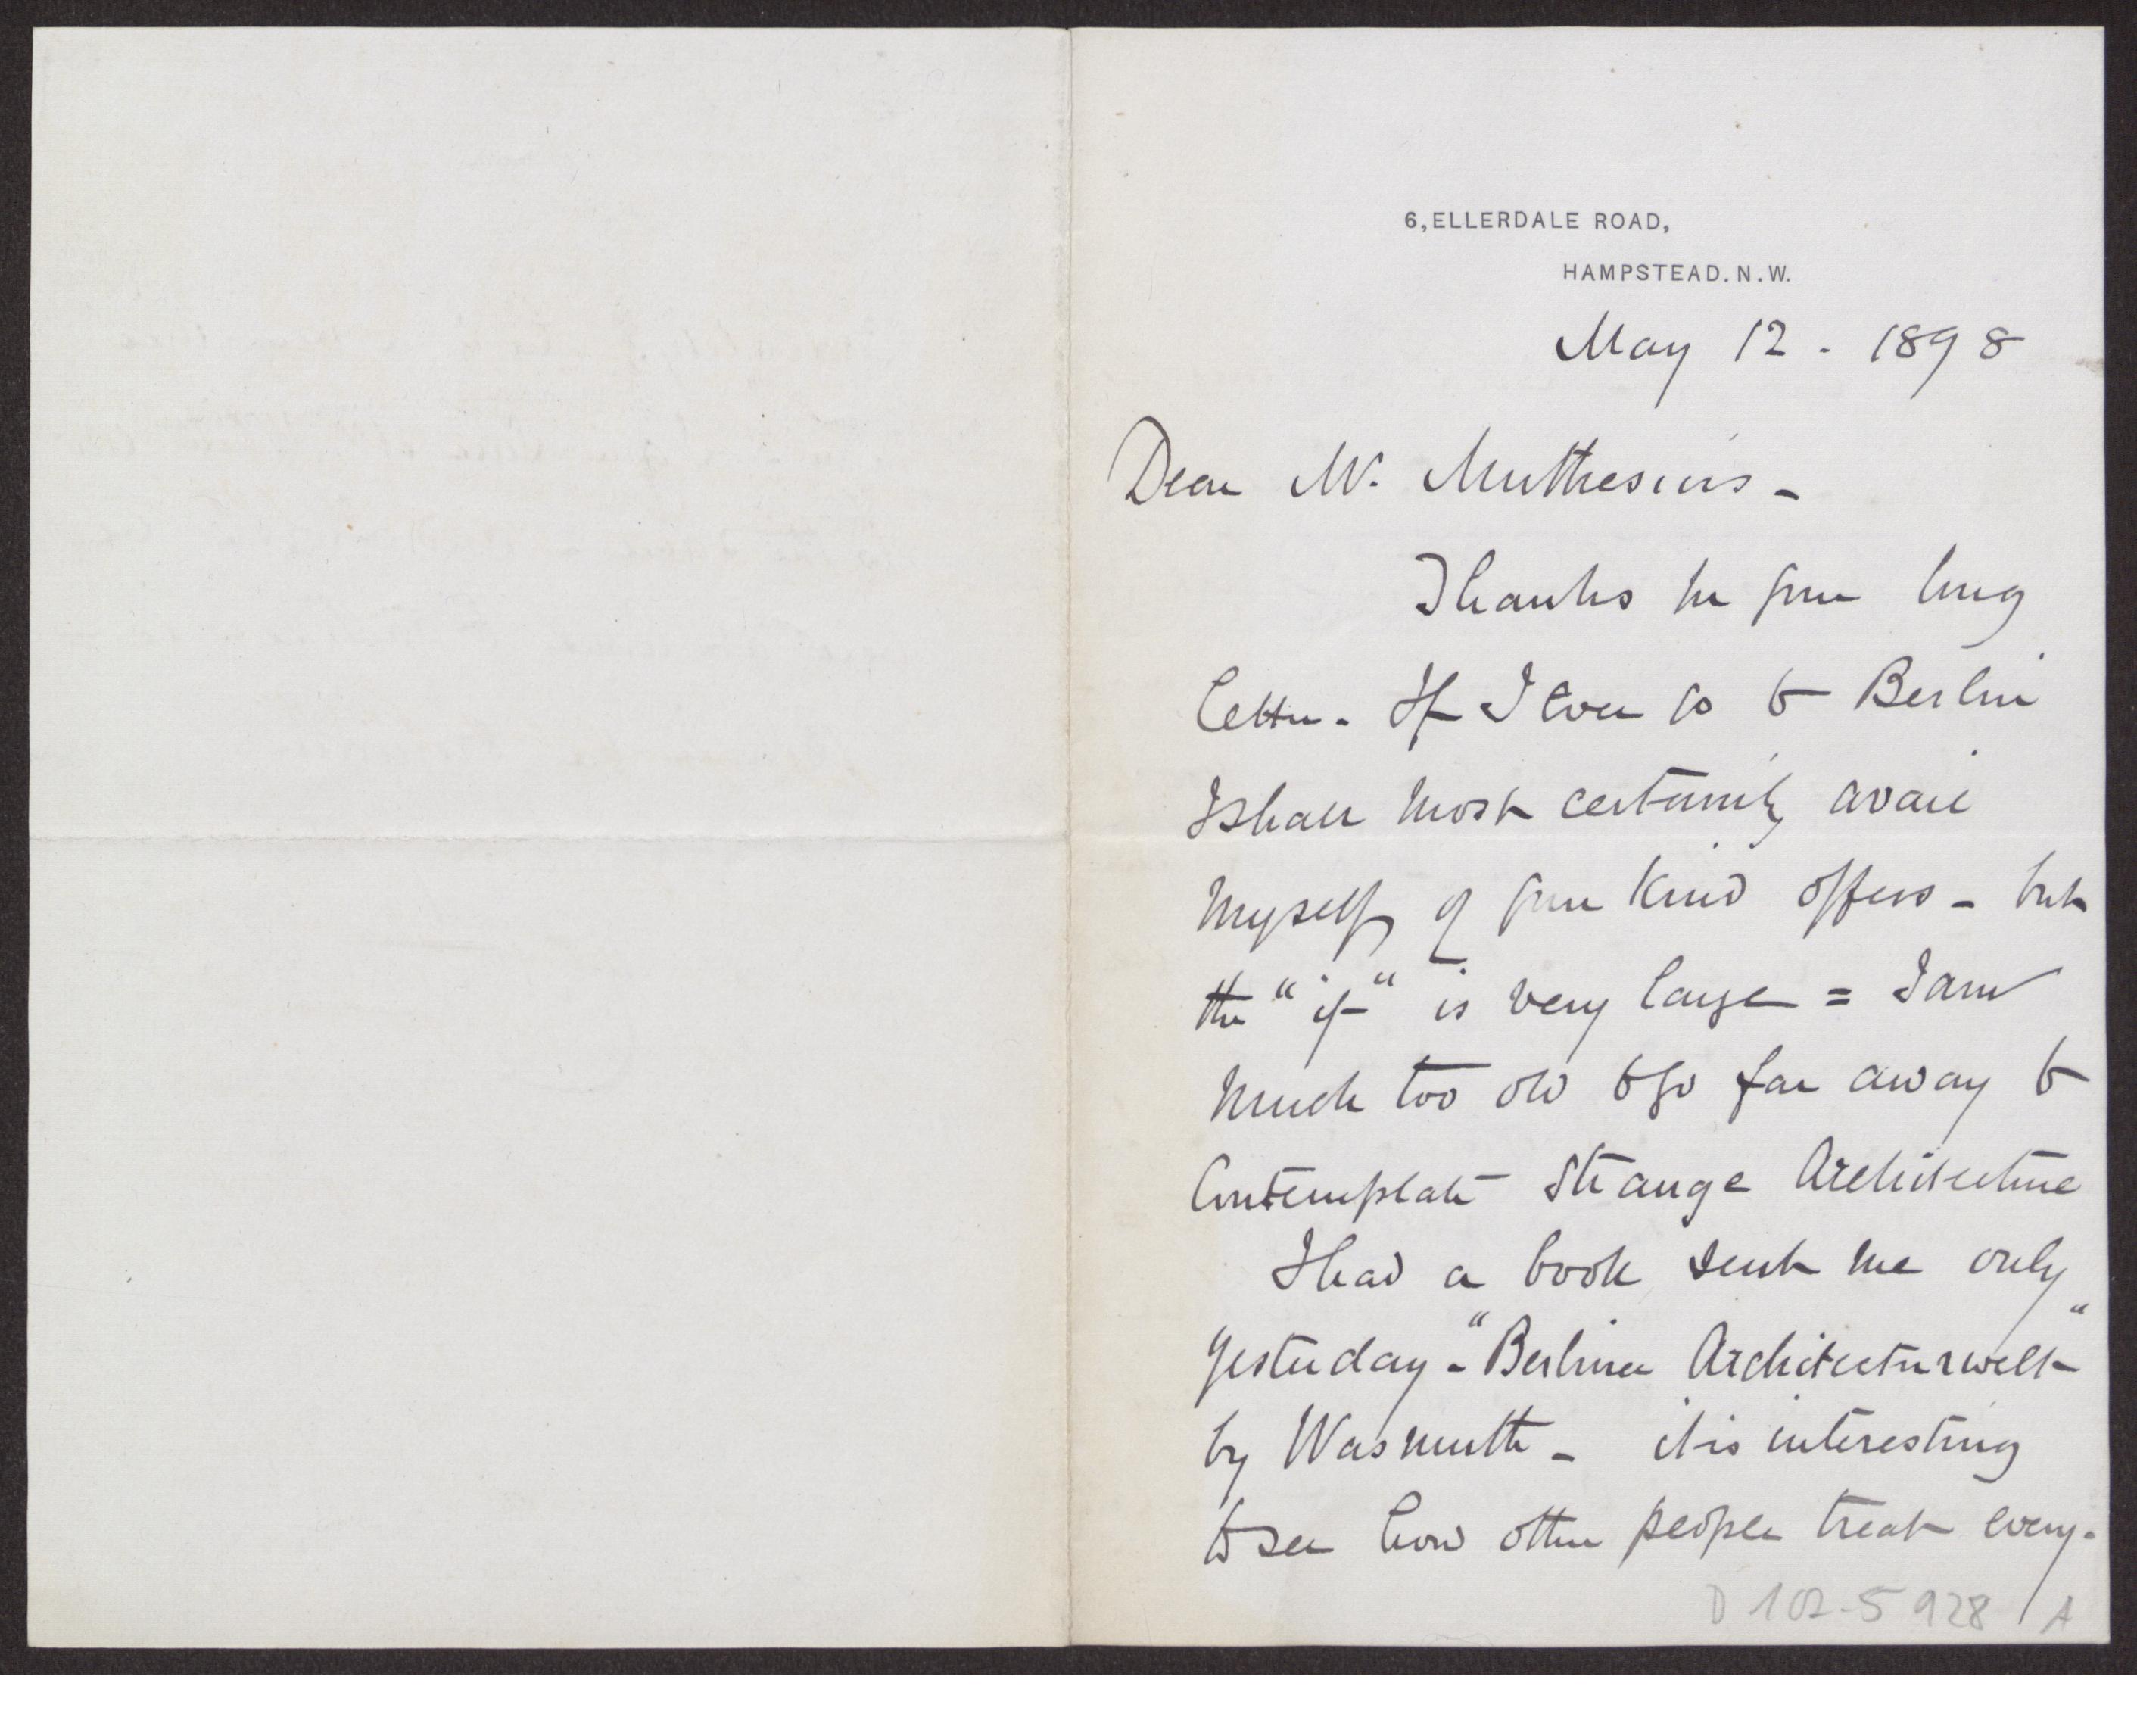 6, ELLERDALE ROAD,
HAMPSTEAD. N.W.
May 12 - 1898
Dear Mr. Muthesius -
Thanks for your long
letter - If I ever go to Berlin
I shall most certainly avail
myself of your kind offers - but
the "if" is very large = I am
much too old to go far away to
Contemplate Strange Architecture
I had a book sent me only
yesterday - "Berliner Architecturwelt"
by Wasmuth - it is interesting
to see how other people treat every-
D 102-5928 A